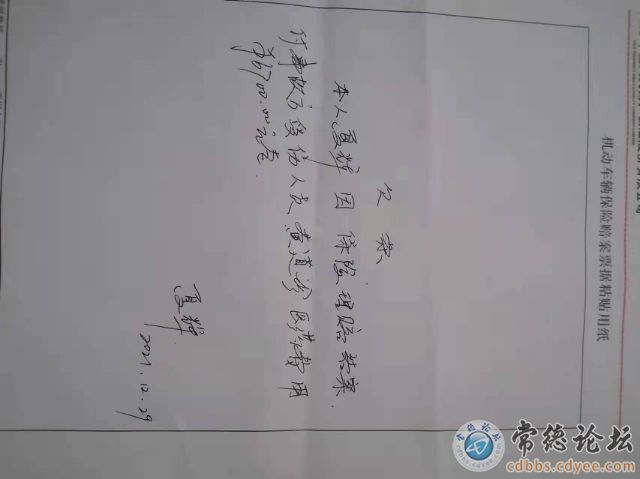 机动车辆保险赔案票据粘贴用纸
欠款
本人夏辉因保险理赔结案.
付事故方受伤人员黄道珍医疗费用
夏辉.
2021.12.29
常德论坛
cdbbs.cdyee.com